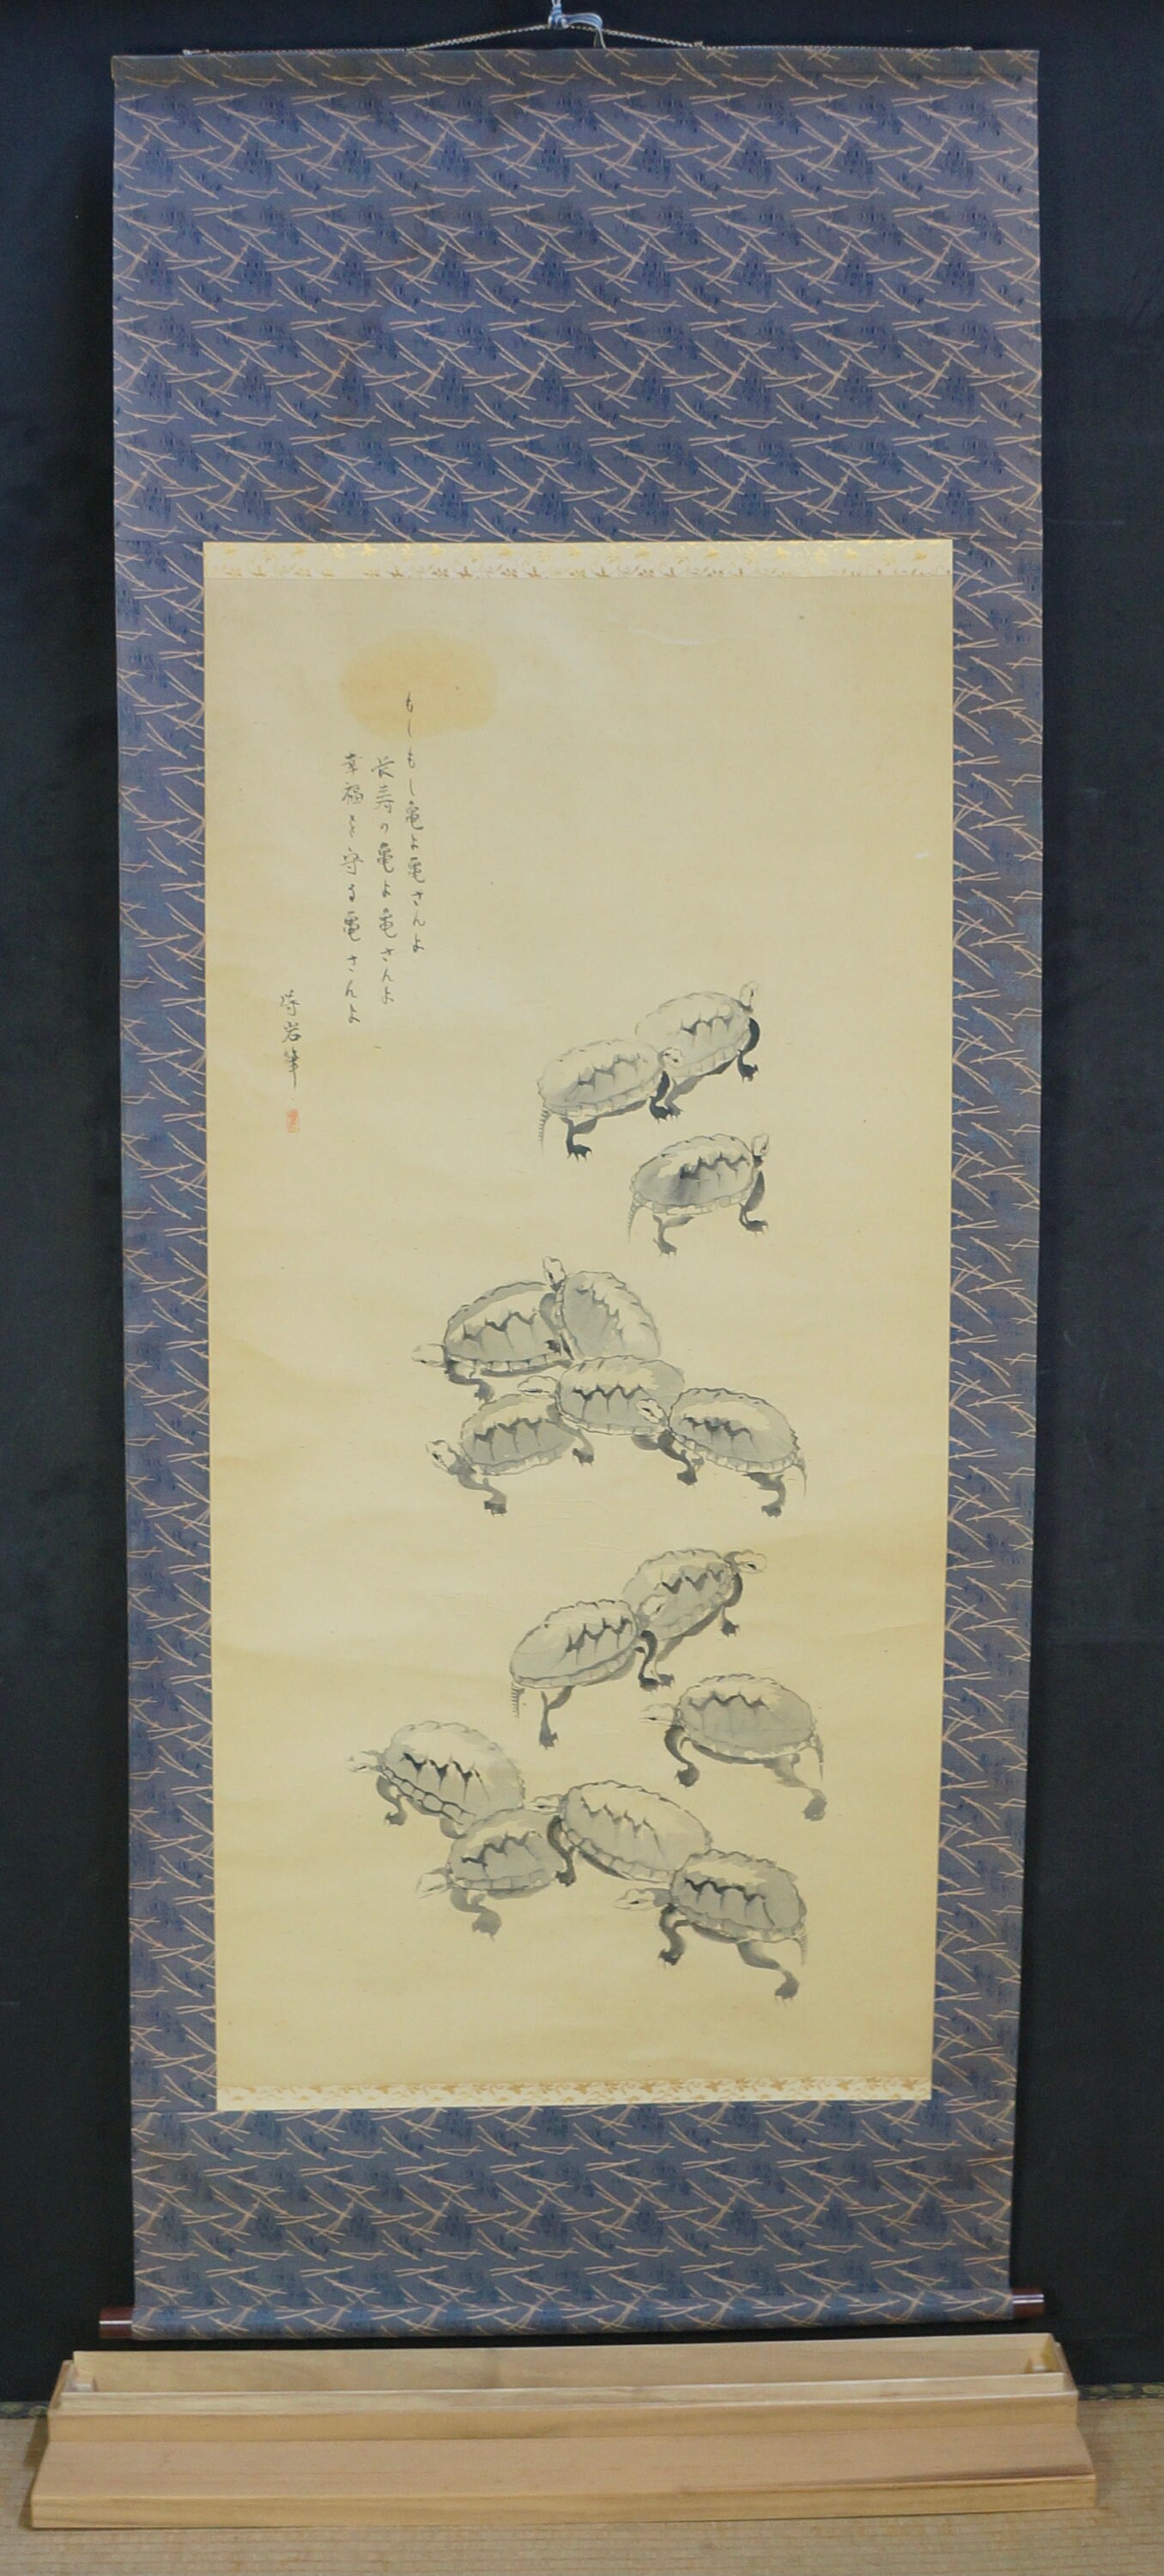 もしもし亀よ亀さんよ
長寿の亀よ亀さんよ
幸福を守る亀さんよ
岩峰